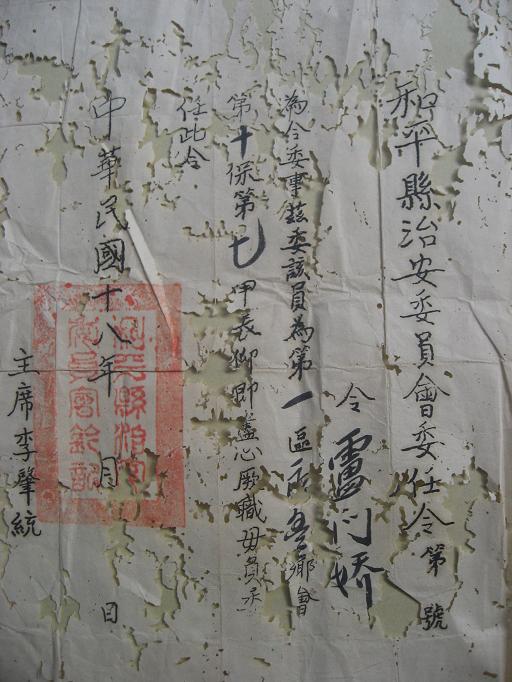 和平縣治安委員會委任令第 號
令盧
為令委事茲委該員為第一區 鄉會
第十保第七甲長仰即盡心厥職毋負委
任此令
中華民國十八年 月 日
和平縣治安
委員會鈐記
主席李肇統